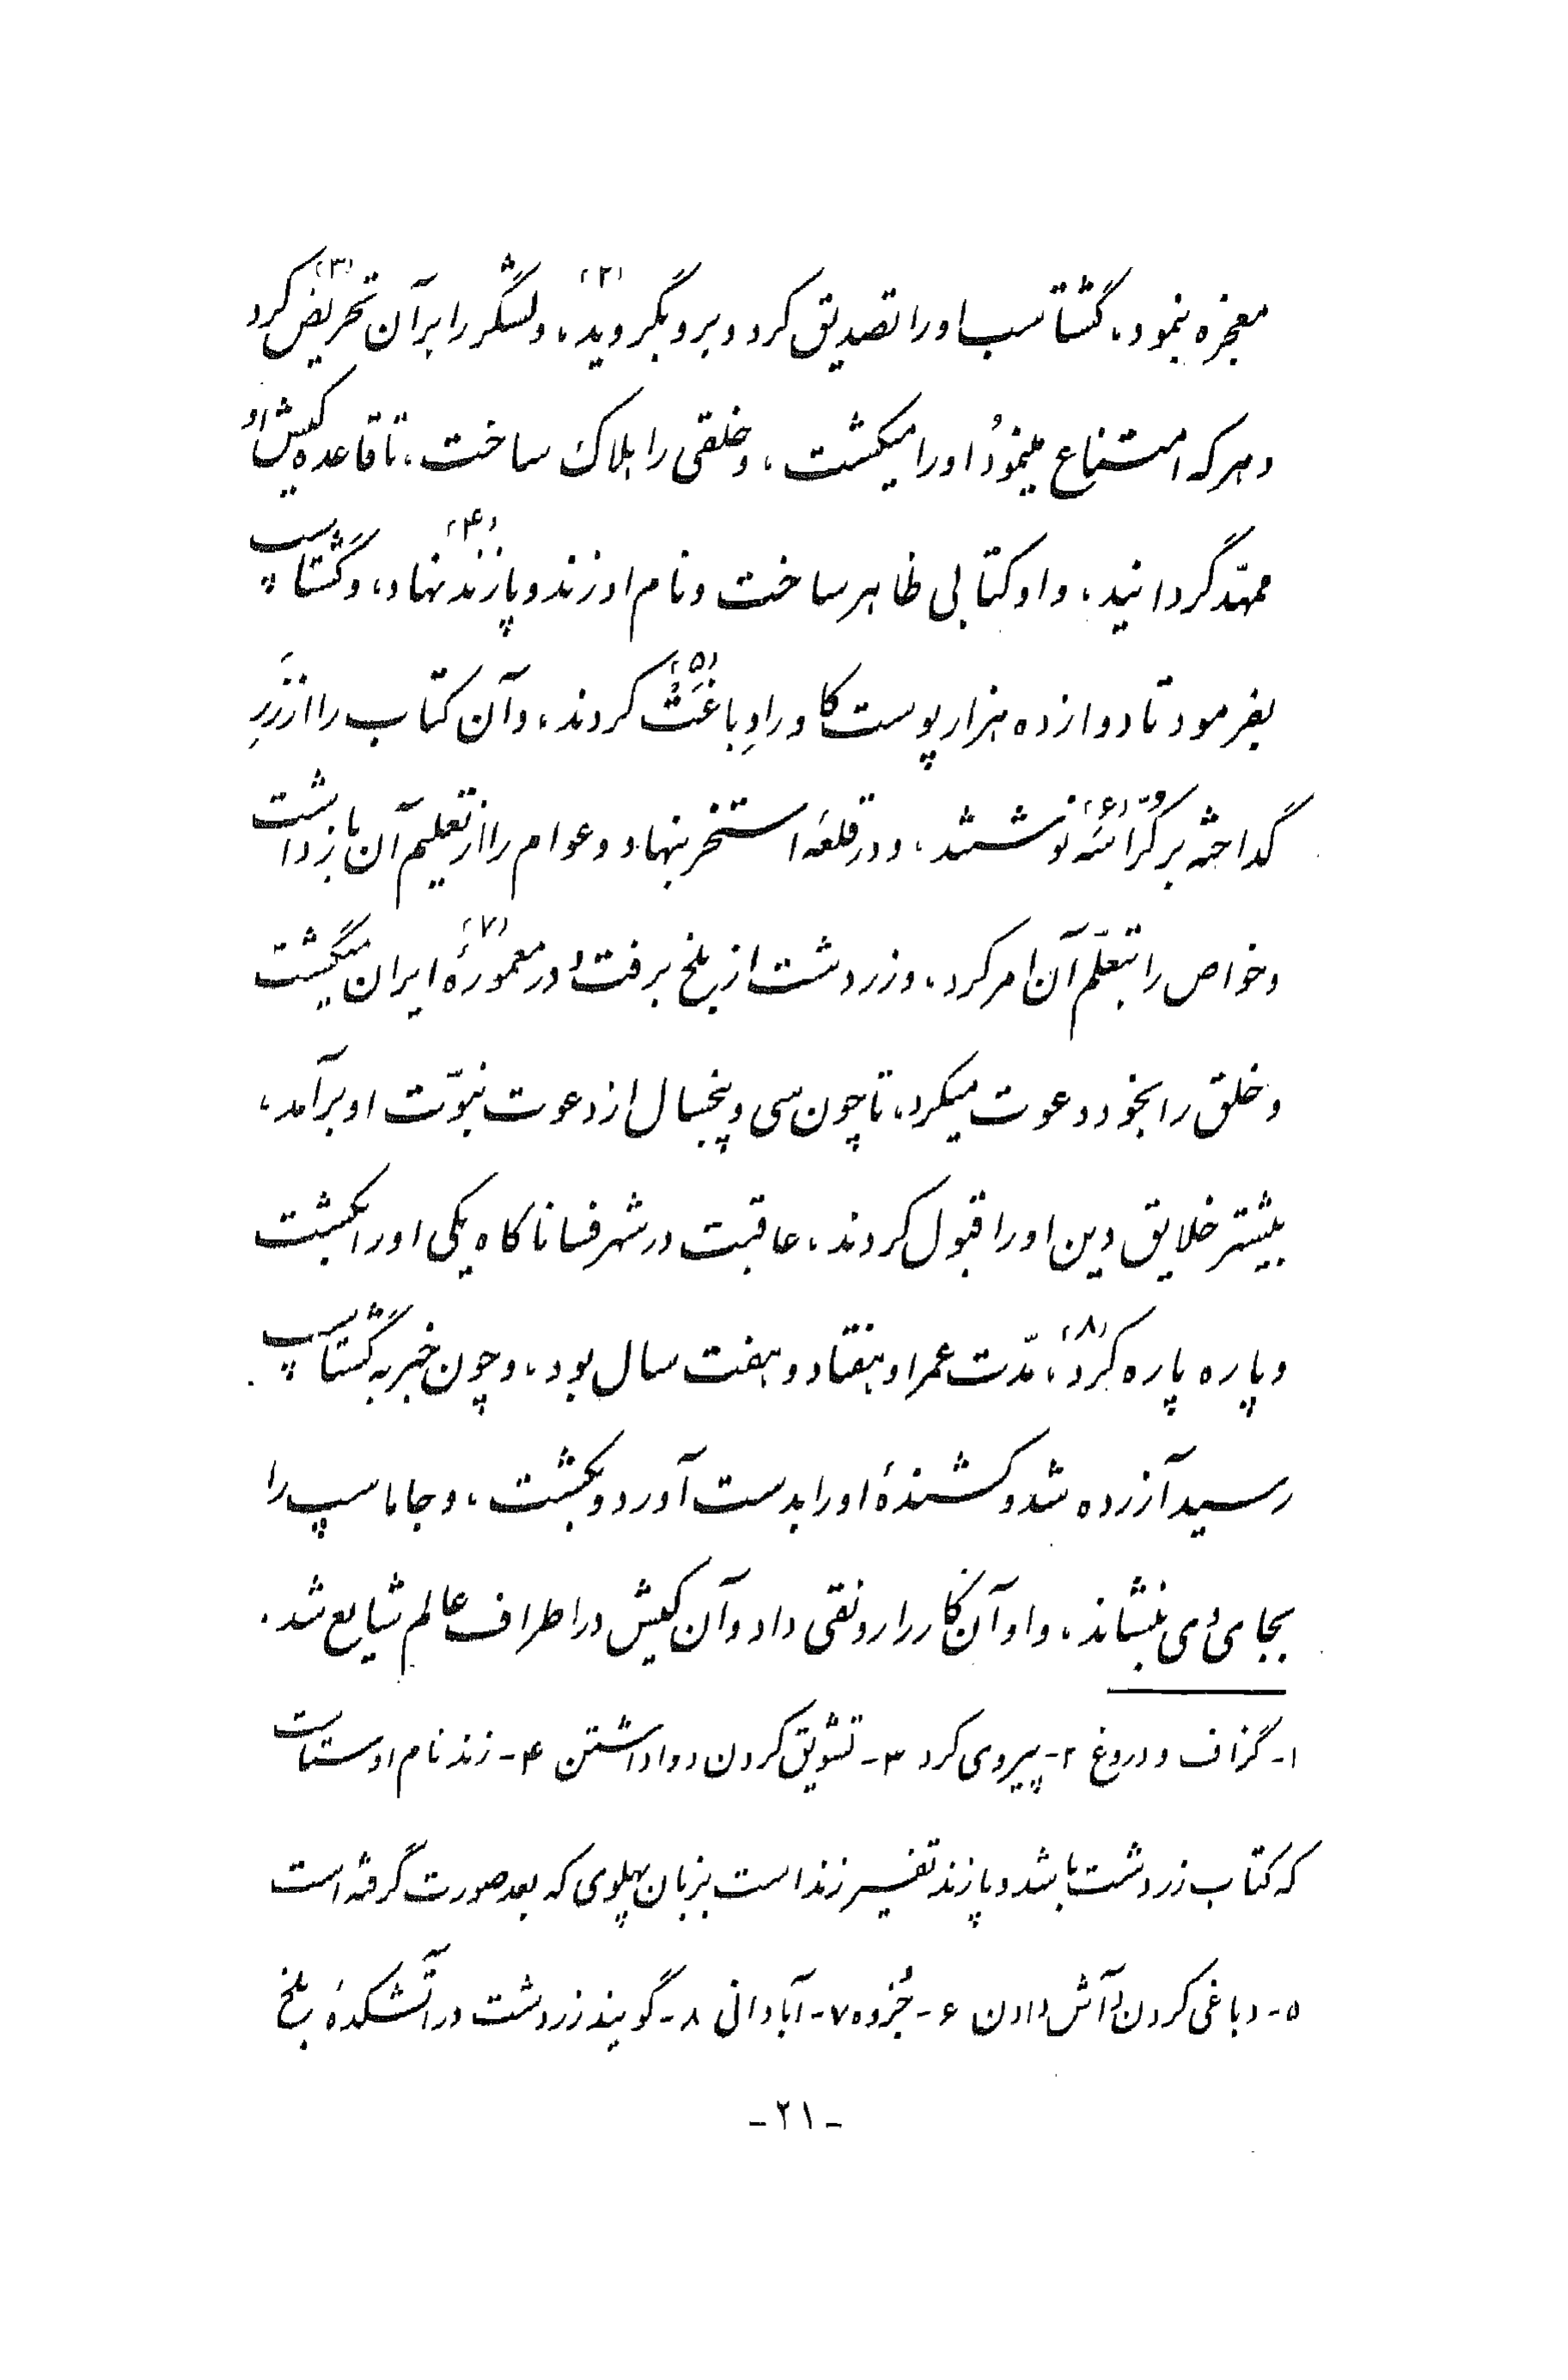 معجزه بنمود، گشتاسب او را تصدیق کرد و برو بگروید(۲)، و لشگر را بر آن تحریض(۳) کرد
و هر که امتناع مینمود، او را میکشت، و خلقی را هلاک ساخت، تا قاعده کیش او
ممهّد گردانید، و او کتابی ظاهر ساخت و نام او زند و پازند(۴) نهاد، و گشتاسپ
بفرمود تا دوازده هزار پوست گاو را دِباغَت(۵) کردند، و آن کتاب را از زَرِ
گداخته بر کُرّاسَه(۶) نوشتند، و در قلعهٔ استخر بنهاد و عوام را از تعلیم آن باز داشت
و خواص را بتعلّم آن امر کرد، و زردشت از بلخ برفت و در معمورهٔ(۷) ایران میگشت
و خلق را بخود دعوت میکرد، تا چون سی و پنجسال از دعوت نبوّت او برآمد،
بیشتر خلایق دین او را قبول کردند، عاقبت در شهر فسا ناگاه یکی او را بکشت
و پاره پاره کرد(۸)، مدّت عمر او هفتاد و هفت سال بود، و چون خبر به گشتاسپ
رسید آزرده شد و کشندهٔ او را بدست آورد و بکشت، و جاماسپ را
بجای وی بنشاند، و او آن کار را رونقی داد و آن کیش در اطراف عالم شایع شد.
۱- گزاف و دروغ ۲- پیروی کرد ۳- تشویق کردن و واداشتن ۴- زند نام اوستاست
که کتاب زردشت باشد و پازند تفسیر زند است بزبان پهلوی که بعد صورت گرفته است
۵- دباغی کردن و آش دادن ۶- جُزوه ۷- آبادانی ۸- گویند زردشت در آتشکدهٔ بلخ
-۲۱-